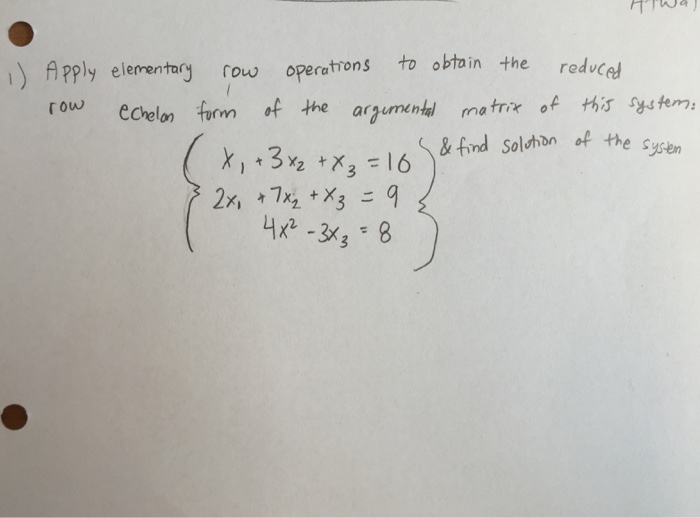 1) Apply elementary row operations to obtain the reduced
row echelon form of the argumental matrix of this system:
& find solution of the system
x₁ + 3x₂ + x₃ = 16
2x₁ + 7x₂ + x₃ = 9
4x² - 3x₃ = 8